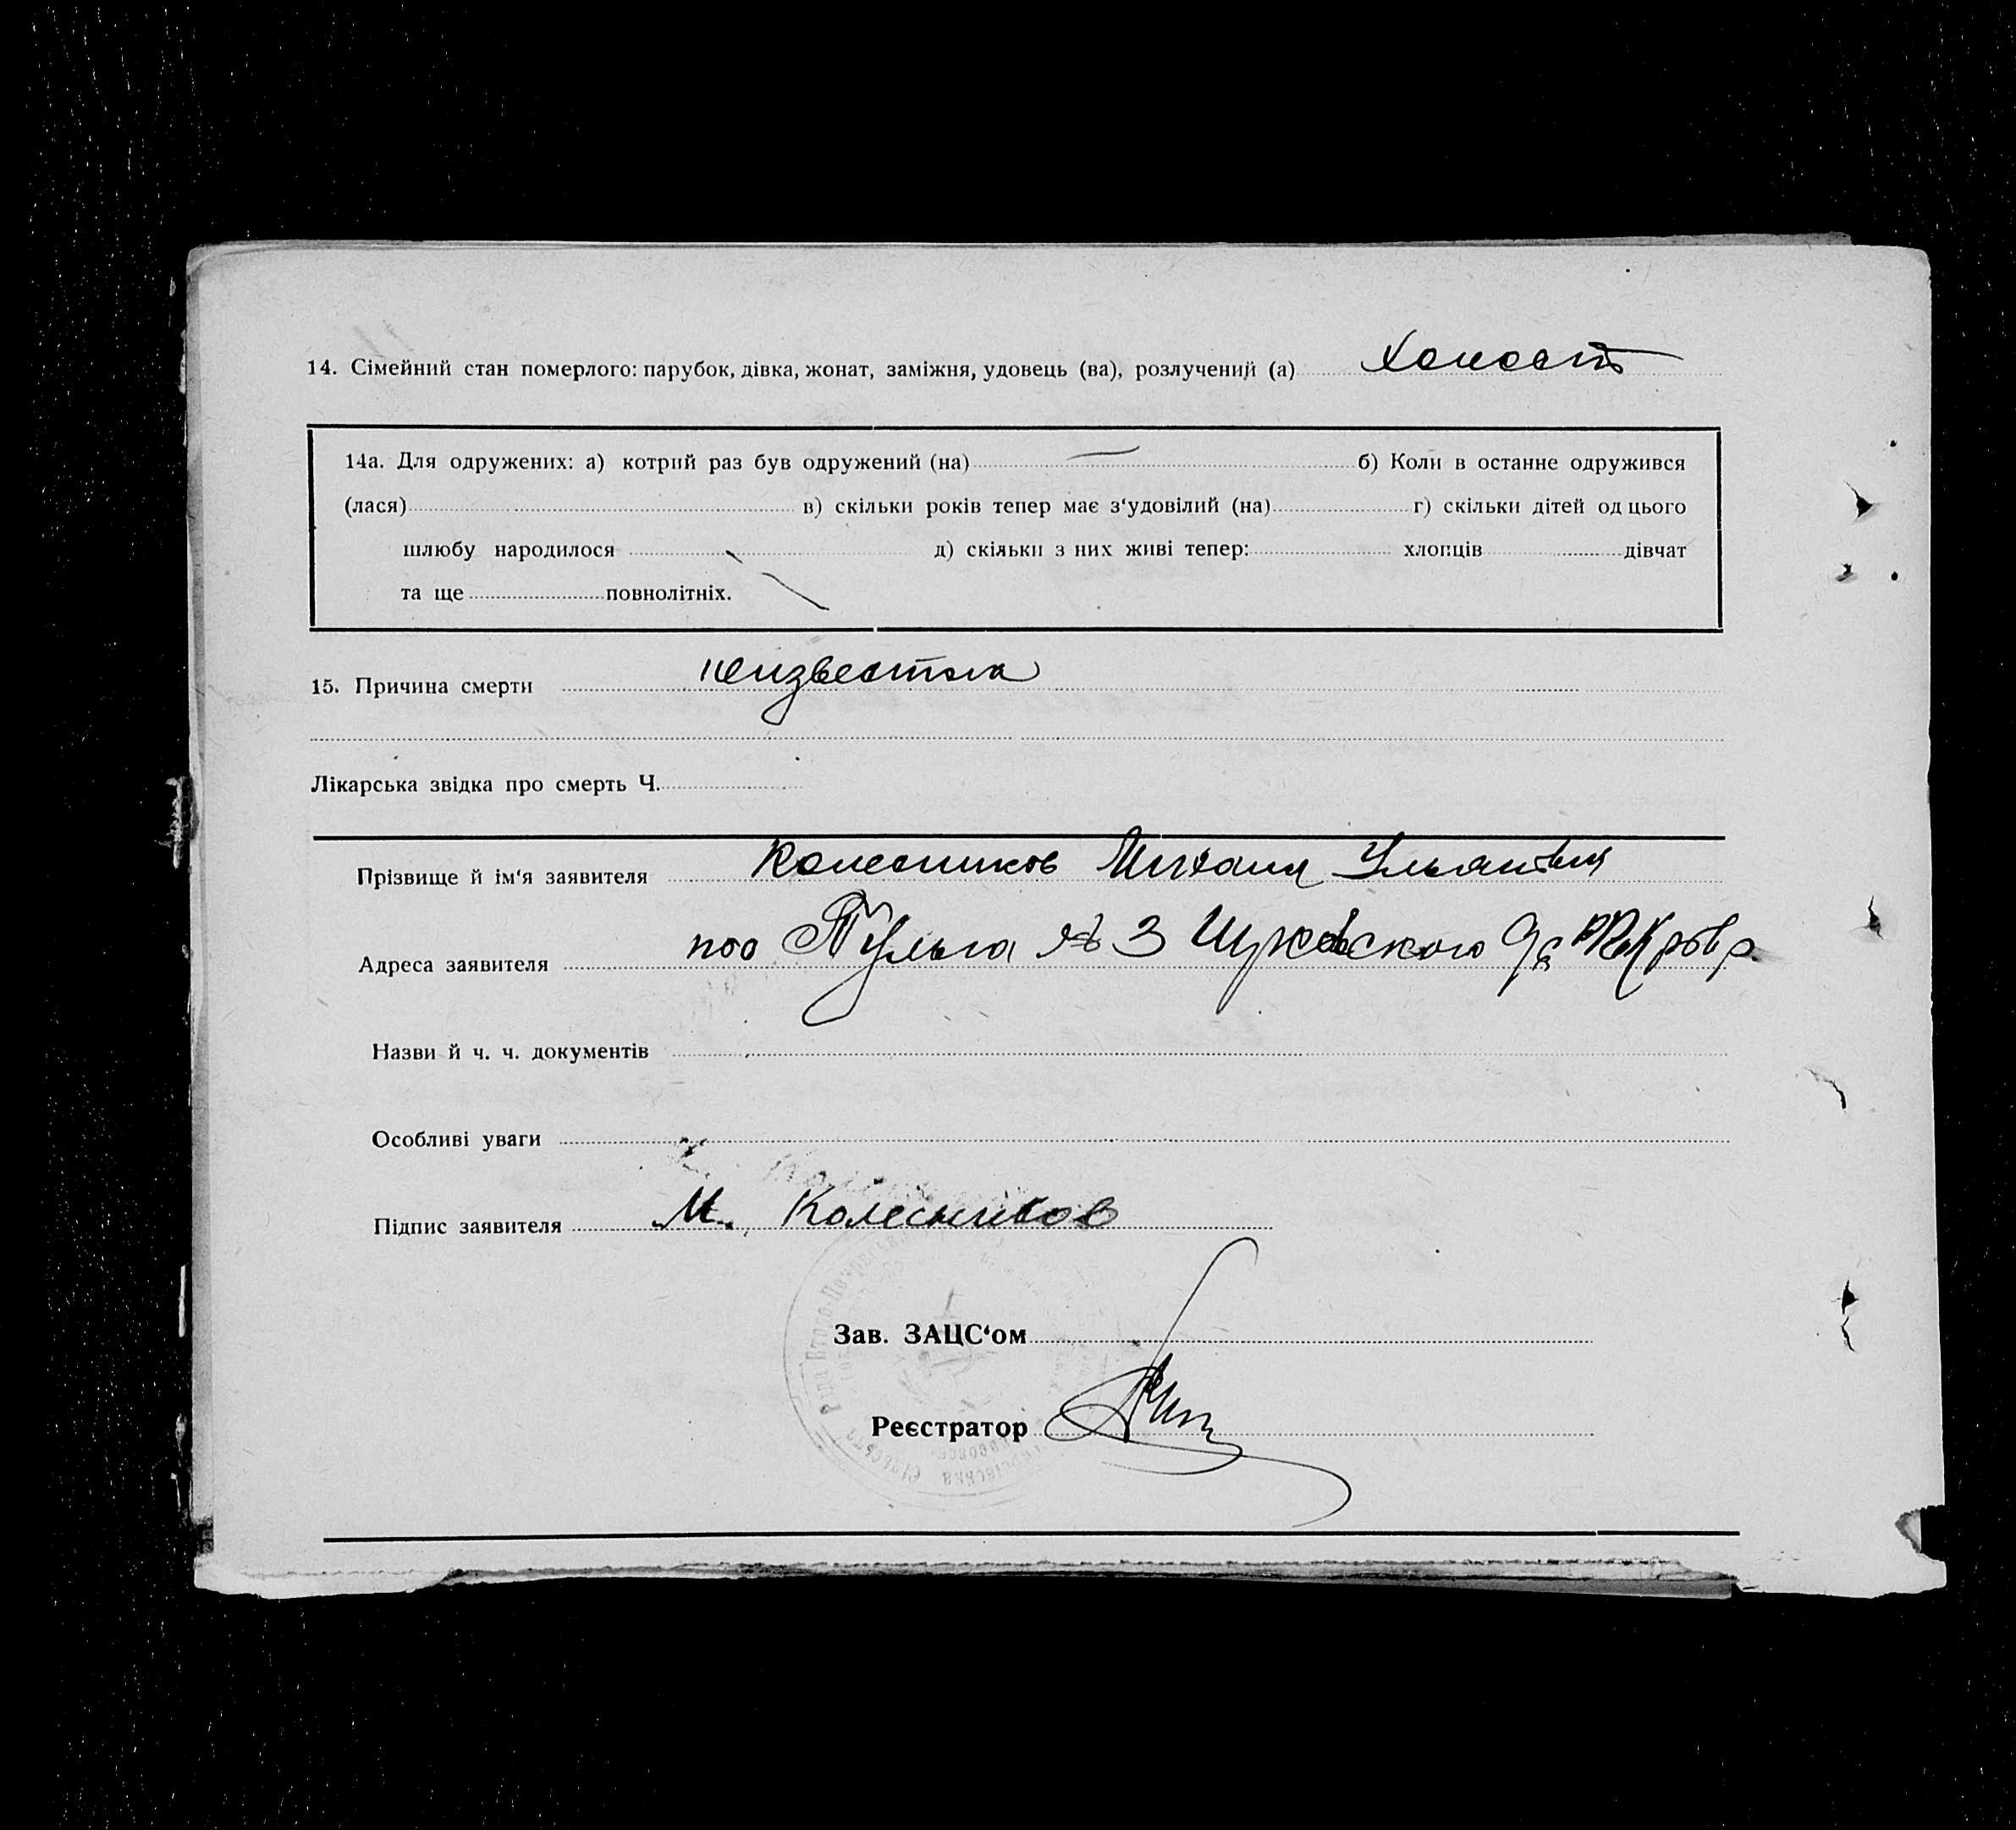 14. Сімейний стан померлого: парубок, дівка, жонат, заміжня, удовець (ва), розлучений (а) холост
14а. Для одружених: а) котрий раз був одружений (на) б) Коли в останне одружився
(лася) в) скільки років тепер має з‘удовілий (на) г) скільки дітей од цього
шлюбу народилося д) скільки з них живі тепер: хлопців дівчат
та ще повнолітніх.
15. Причина смерти неизвестна
Лікарська звідка про смерть Ч.
Прізвище й ім‘я заявителя Колесников Михаил Ульянович
Адреса заявителя пос № 3
Назви й ч. ч. документів
Особливі уваги
Підпис заявителя М. Колесников
Зав. ЗАЦС‘ом
Реєстратор